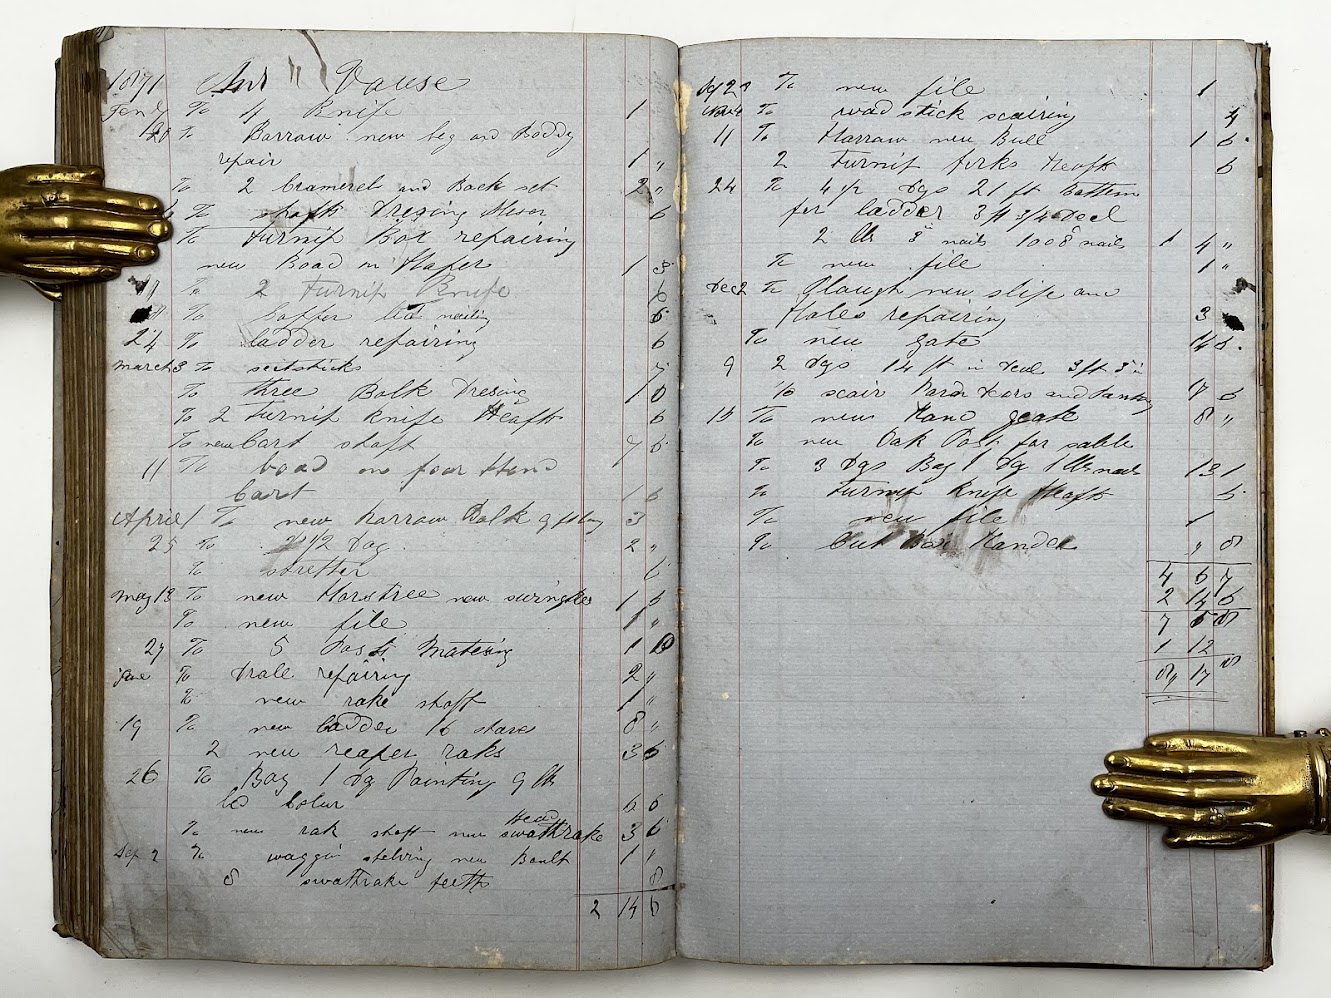 1871 Mr " Vause
To 4 Knife 1
28 To Barrow new leg and Boddy
repair 1 "
To 2 and Back set 2 "
To shaft Dresing 6
To turnip Box repairing
new Boad on 1 3
11 To 2 turnip Knife 6
To nailing 6
24 To ladder repairing 6
March 3 To seitsticks
To three Balk Dresing 1 0
To 2 turnip Knife Heaft 6
To new Cart shaft 7 6
11 To boad on four Hand
Cart 1 6
April 1 To new harrow Balk 3
25 To 2 1/2 Day 2 "
To stretter 6
May 13 To new new 1 6
To new file 1 "
27 To 5 Post 1 10
June To Drale repairing 2 "
To new rake shaft 1 "
19 To new ladder 16 staves 8 "
2 new reaper raks 3 6
26 To Bay 1 Dy Painting 9 lb
Colur 6 6
Head
To new rak shaft new swathrake 3 6
Sep 2 To waggin stelving new Boult 1 "
8 swathrake teeth 8
2 14 6
To new file 1
Nov 4 To road stick scairing 4
11 To Harrow new Bull 1 6
2 turnip forks Heaft 6
24 To 4 1/2 Dys 21 ft Bottom
for ladder 3 ft 3/4 Deel
2 lb 8 nails 100 8 nails 1 4 "
To new file 1 "
Dec 2 To Plough new slipe and
Hales repairing 3
To new gate 14 6
9 2 Dys 14 ft in Deul 3 ft 3 in
scair Barn Dors and 7 6
To new Hand geak 8 "
To new Oak Post for
To 3 Dys Bay 1 Dy 1 lb nails 13 1
To turnip Knife Heaft 6
To new file 1
To Cut Box Handel " 8
4 6 7
2 14 6
7 8
1 12
8 " 17 8